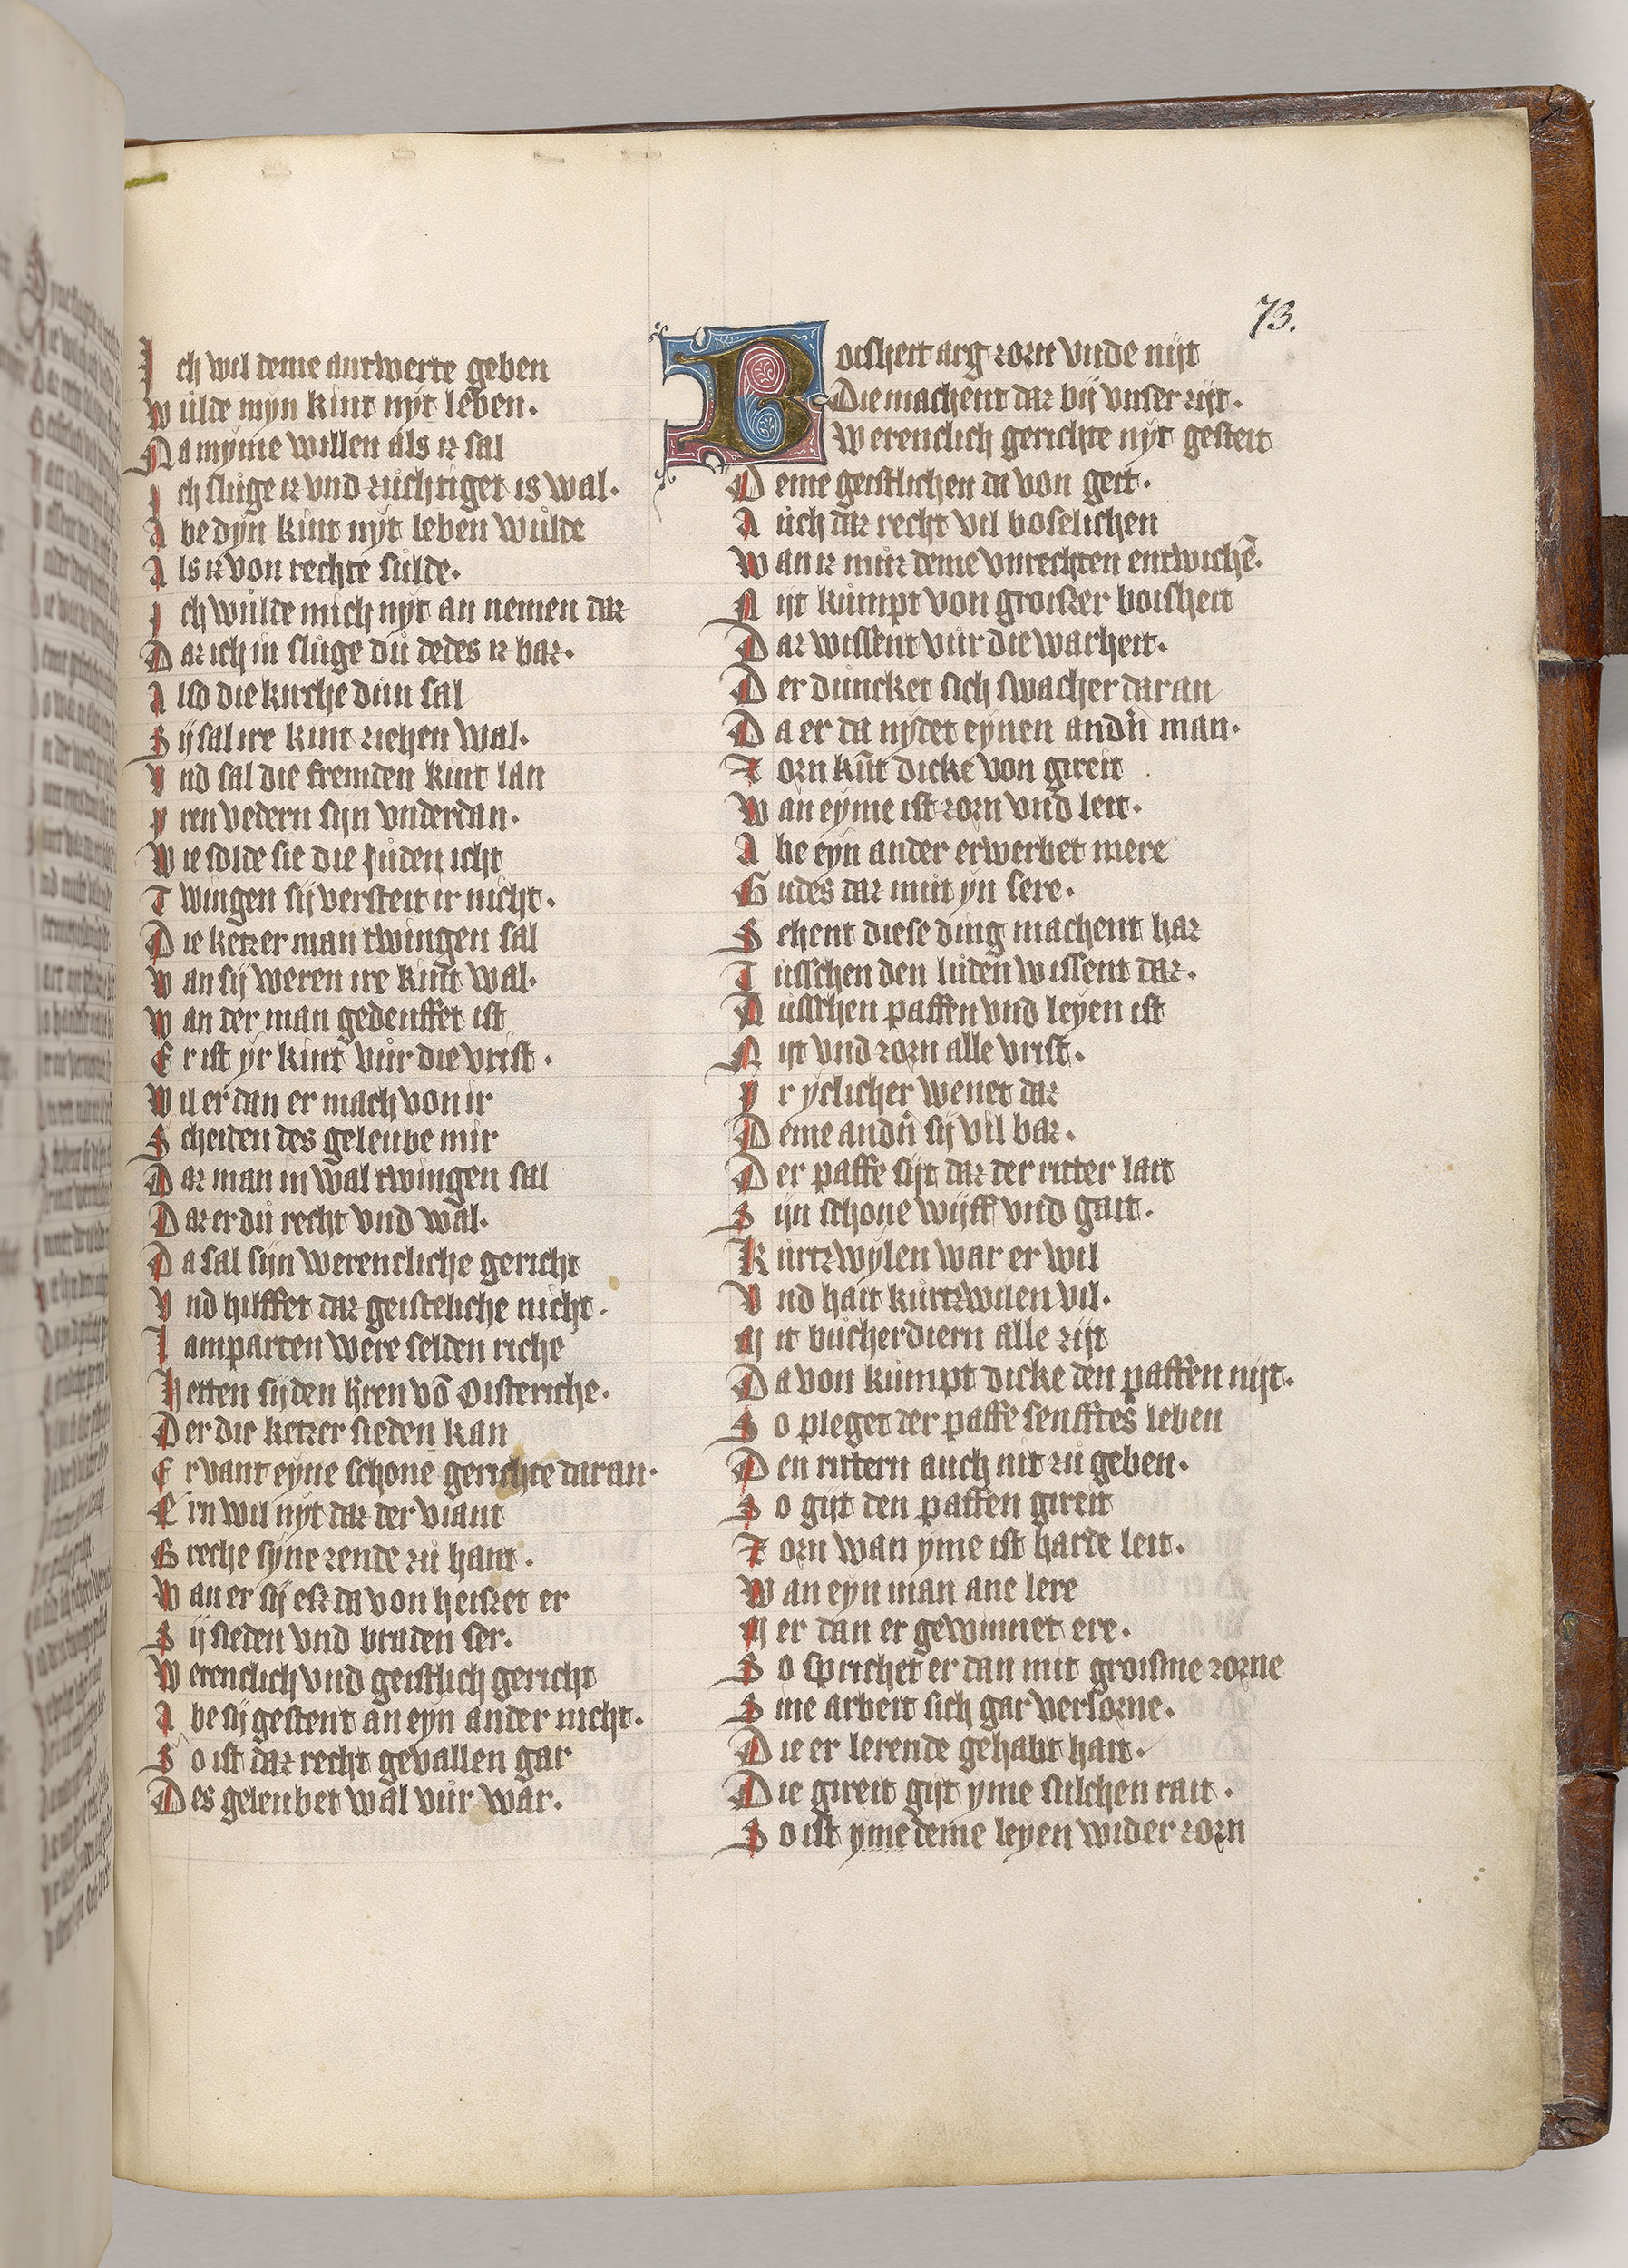 73.
Ich wil deme antwerte geben
Wůlde myn kint nyt leben.
Na myme willen als iz sal
Ich slůge iz vnd zůchtiget is wal.
Abe dyn kint nyt leben wůlde
Als iz von rechte sůlde.
Ich wůlde mich nyt an nemen daz
Daz ich in slůge dů dedes iz baz.
Also die kirche důn sal
Sij sal ire kint ziehen wal.
Vnd sal die fremden kint lan
Yren vedern sijn vnderdan.
Wie solde sie die Juden icht
Twingen sij versteit ir nicht.
Die ketzer man twingen sal
Wan sij weren ire kint wal.
Wan der man gedeuffet ist
Er ist yr kint vůr die vrist.
Wil er dan er mach von ir
Scheiden des geleube mir
Daz man in wal twingen sal
Daz er dů recht vnd wal.
Da sal sijn werentliche gericht
Vnd hilffet daz geisteliche nicht.
Lamparten were selden riche
Hetten sij den h̄ren vō Oisteriche.
Der die ketzer sieden kan
Er vant eyne schone gerichte daran.
Ern wil nyt daz der viant
Breche syne zende zů hant.
Wan er sij esz da von heiszet er
Sij sieden vnd braden ser.
Werentlich vnd geistlich gericht
Abe sij gestent an eyn ander nicht.
So ist daz recht gevallen gar
Des geleubet wal vůr war.
Boisheit arg zorn vnde nijt
Die machent daz bij vnser zijt.
Werentlich gerichte nyt gesteit
Deme geistlichen da von geit.
Auch daz recht vil boselichen
Wan iz můz deme vnrechten entwichē.
Nijt kůmpt von groiszer boisheit
Daz wissent vůr die warheit.
Der důncket sich swacher dar an
Da er da nydet eynen andn̄ man.
Zorn kūt dicke von gireit
Wan eyme ist zorn vnd leit.
Abe eyn ander erwerbet mere
Gudes daz můt yn sere.
Sehent diese ding machent haz
Tusschen den luden wissent daz.
Dusschen paffen vnd leyen ist
Nijt vnd zorn alle vrist.
Yr yclicher wenet daz
Deme andn̄ sij vil baz.
Der paffe siit daz der ritter lait
Sijn schone wijff vnd gait.
Kurtzwylen war er wil
Vnd hait kůrtzwilen vil.
Mit bůcherdiern alle zijt
Da von kůmpt dicke den paffen nijt.
So pleget der paffe senfftes leben
Den rittern auch nit zů geben.
So gijt den paffen gireit
Zorn wan yme ist harde leit.
Wan eyn man ane lere
Mer dan er gewinnet ere.
So sprichet er dan mit groisme zorne
Sine arbeit sich gar verlorne.
Die er lerende gehabt hait.
Die gireit gijt yme sulchen rait.
So ist yme deme leyen wider zorn